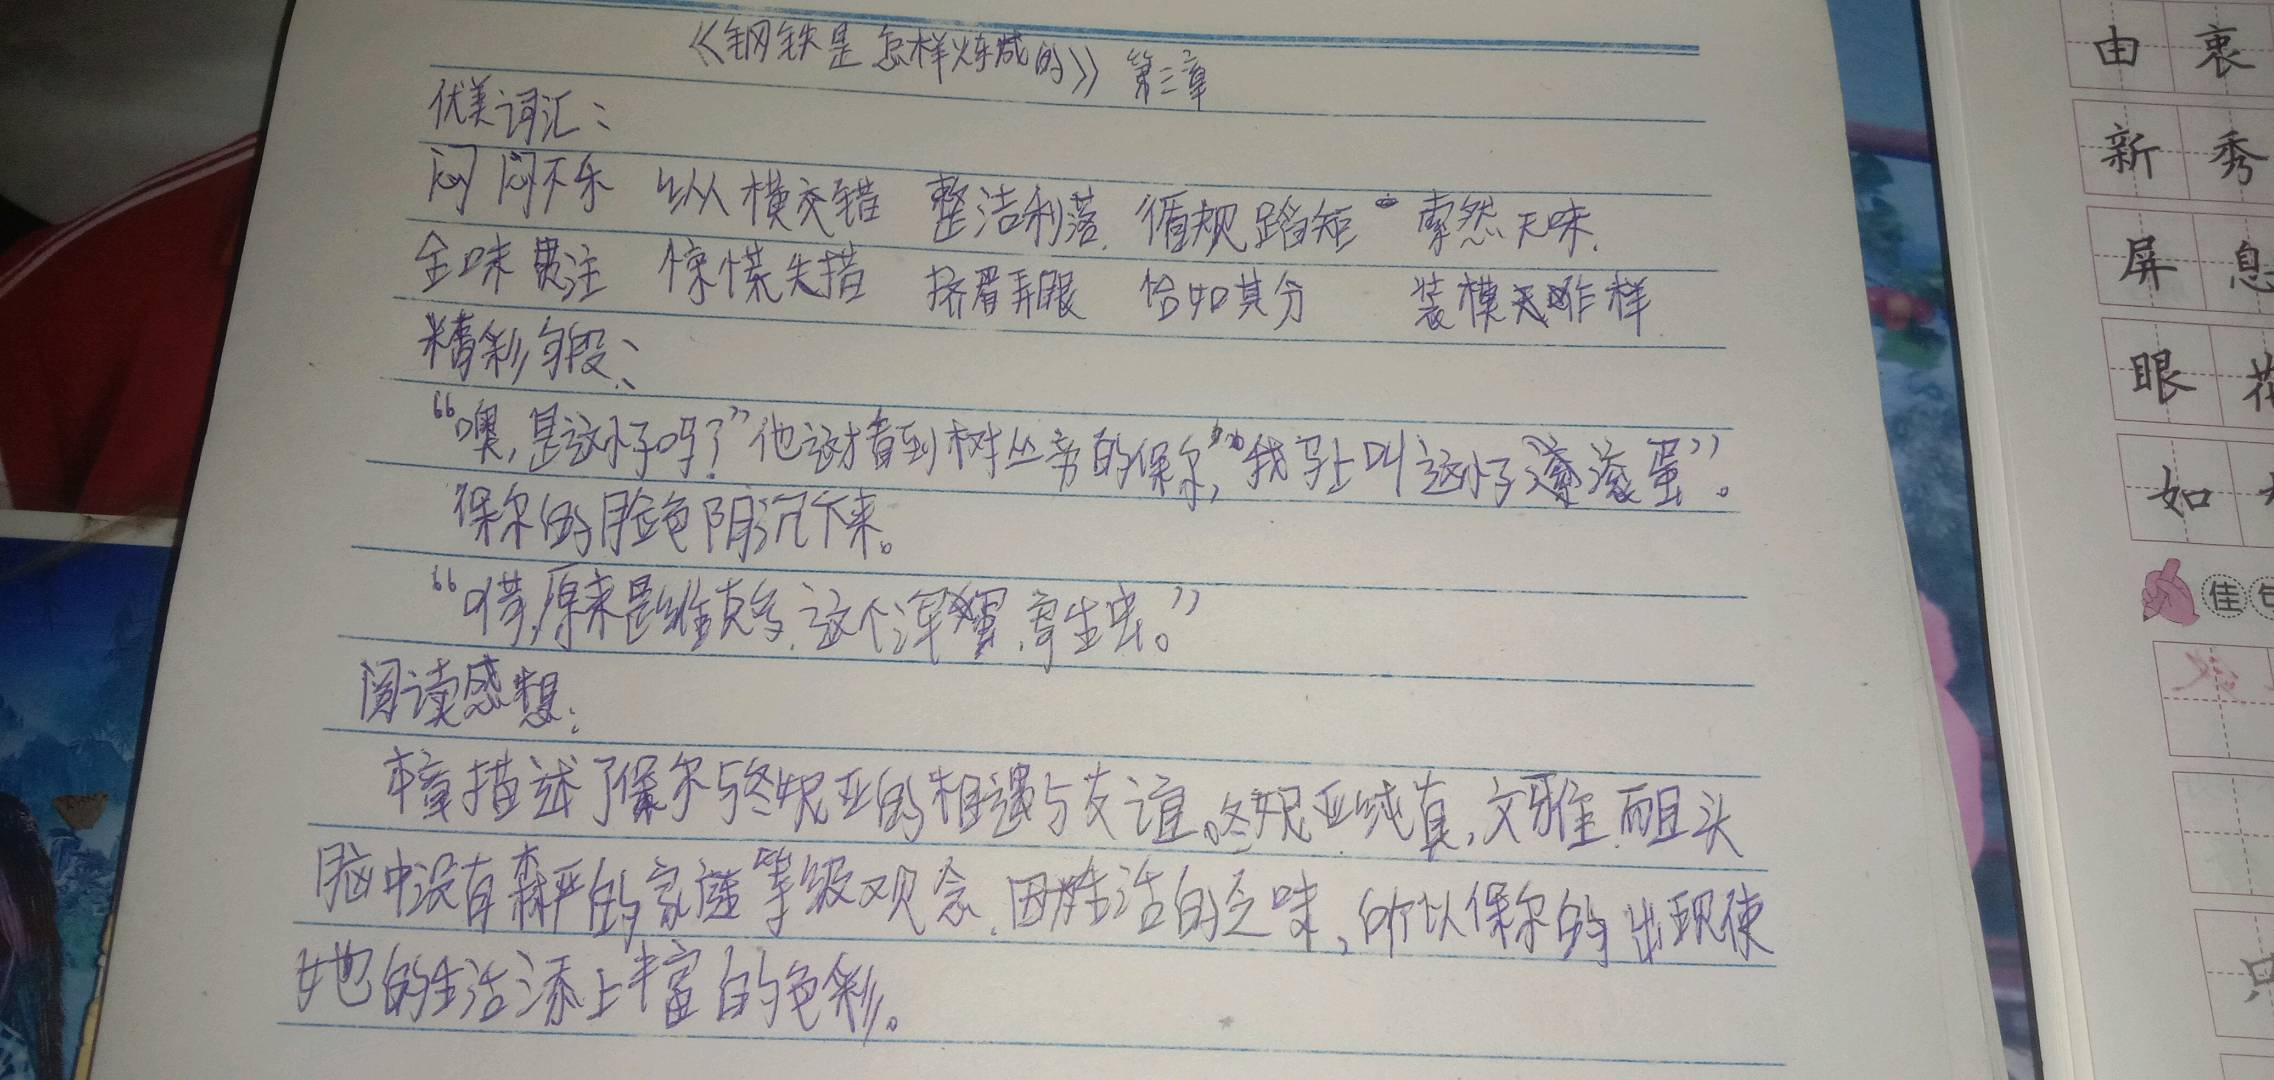 《钢铁是怎样炼成的》 第三章
优美词汇：
闷闷不乐 纵横交错 整洁利落 循规蹈矩 索然无味
全味贯注 惊慌失措 挤眉弄眼 恰如其分 装模作样
精彩句段：
“噢，是这小子吗？”他这才看到树丛旁的保尔，“我马上叫这小子滚蛋”。
保尔的脸色阴沉下来。
“喏，原来是维克多，这个浑蛋，寄生虫。”
阅读感想：
本章描述了保尔与冬妮亚的相遇与友谊。冬妮亚纯真，文雅，而且头
脑中没有森严的家庭等级观念，因生活的乏味，所以保尔的出现使
她的生活添上丰富的色彩。
由 衷
新 秀
屏 息
眼
如
佳